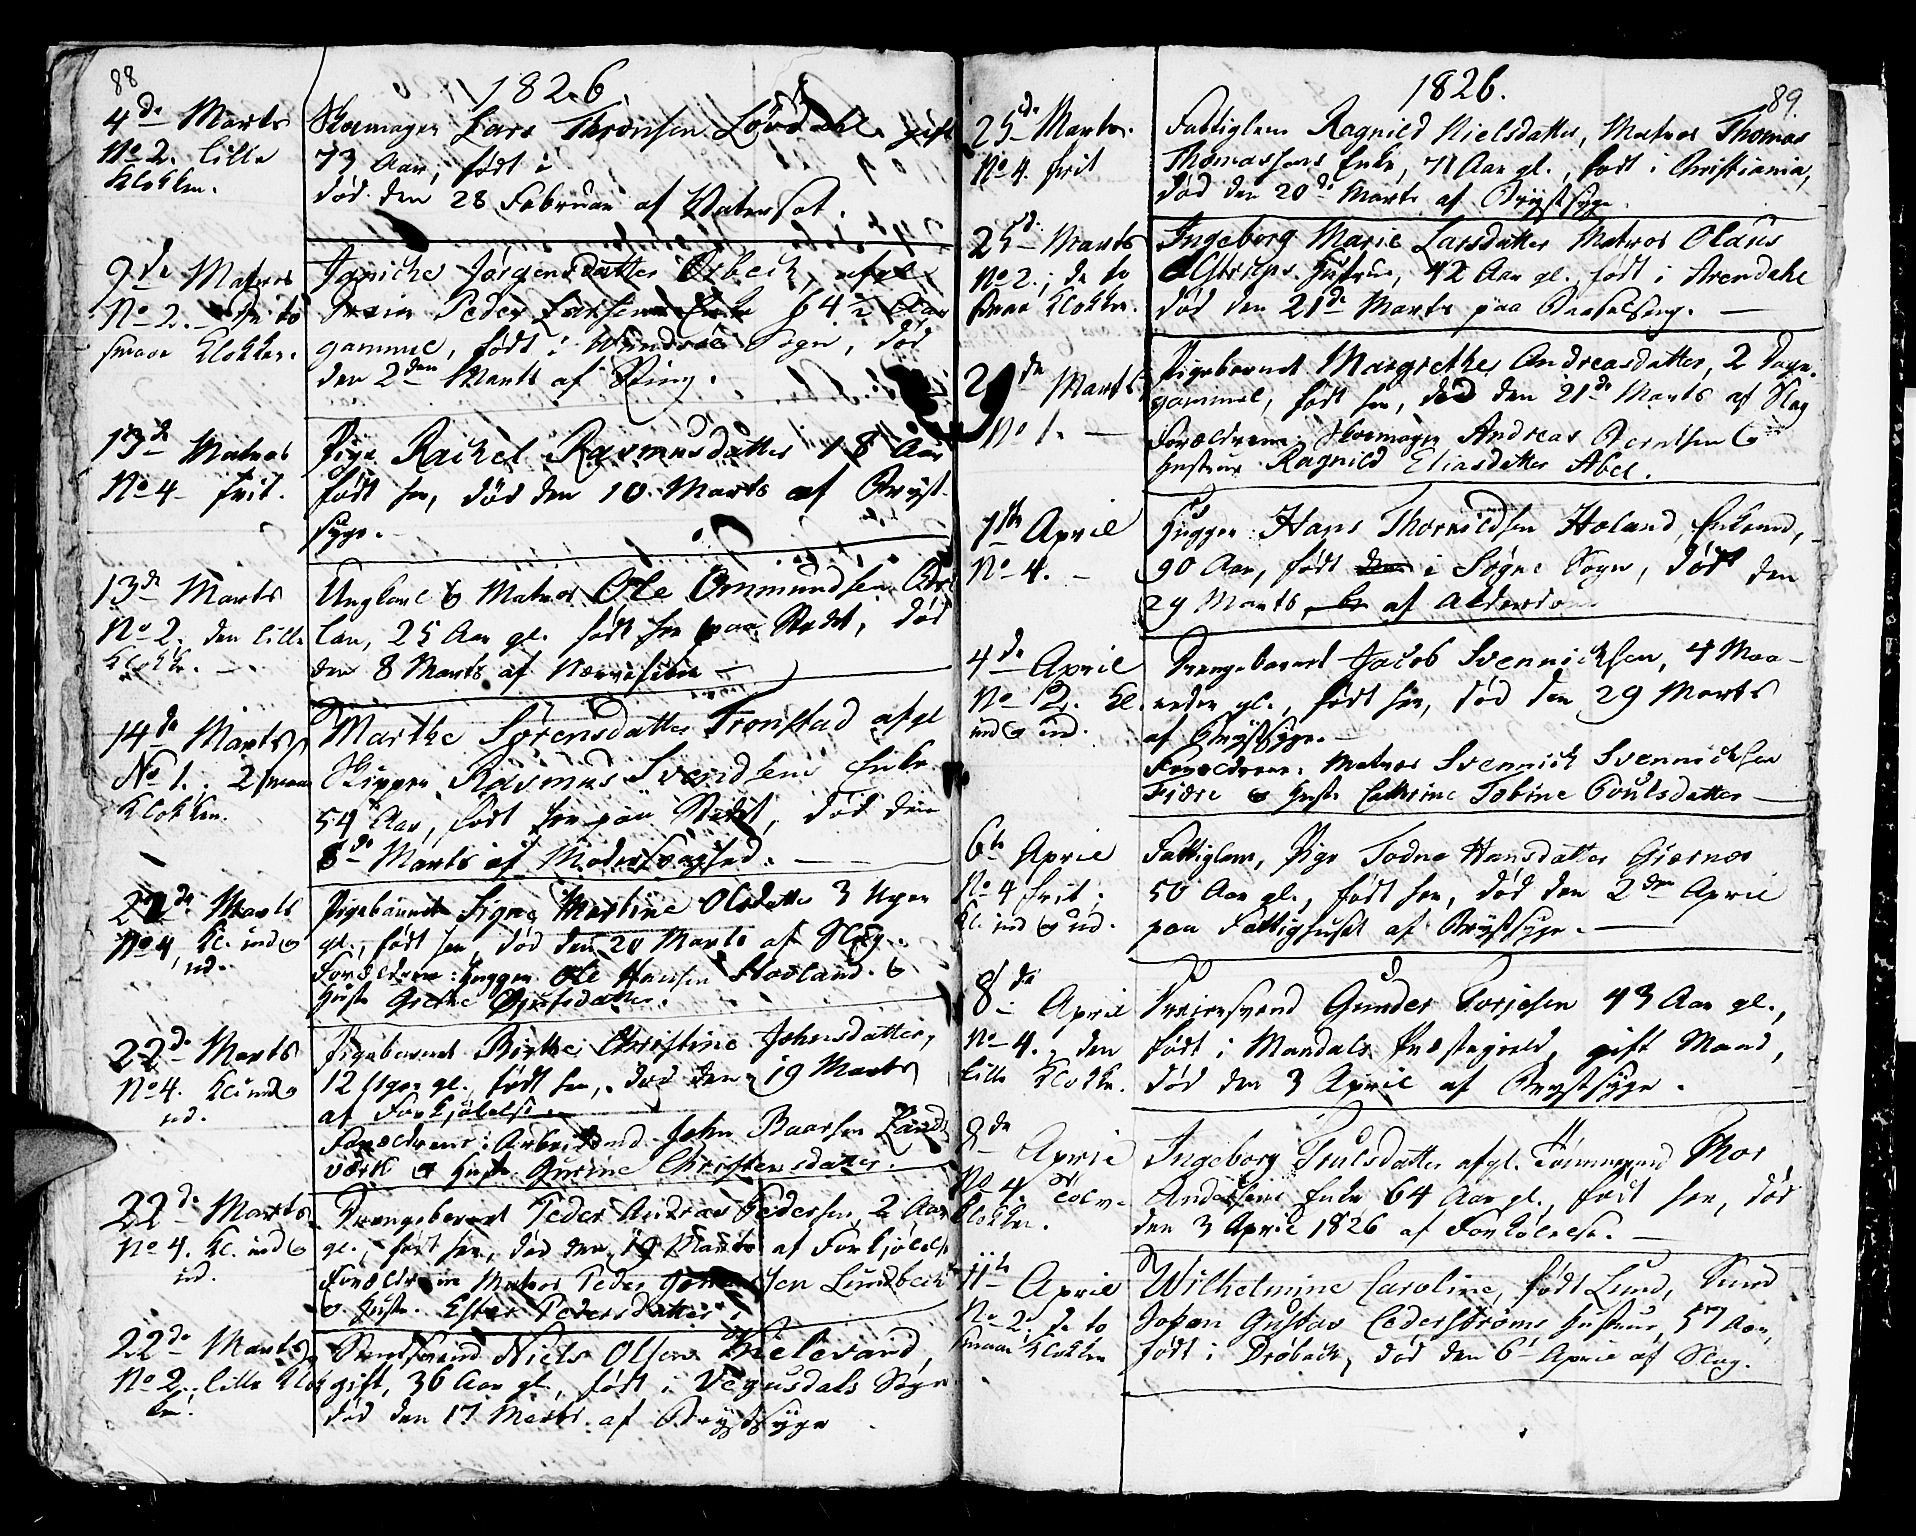 88
1826.
4de Marts
No 2. lille
Klokken.
Skomager Lars Thronsen Løvdahl gift
73 Aar, født i
død den 28 Februar af Vatersot.
9de Martss
No 2. de to
smaae Klokker.
Janiche Jørgensdatter Örbeck, afgl.
Peder Larsens Enke 64½ Aar
gammel, født i Sogn, død
den 2den Marts af Sting.
13de Marts
No 4 frit.
Pige Rachel Rasmusdatter 18 Aar
født her, død den 10 Marts af Bryst-
syge.
13de Marts
No 2. den lille
Klokke.
Ungkarl & Matros Ole Ommundsen
25 Aar gl. født her paa Stedet, død
den 8 Marts af Nervefeber
14de Marts
No 1. 2 smaae
Klokker.
Marthe Sørensdatter Tronstad afgl
Skipper Rasmus Svendsens Enke
54 Aar, født her paa Stedet, død den
8de Marts af
22de Marts
No 4, Kl. ind &
ud.
Pigebarnet Signe Martine Olsdatter 3 Uger
gl., født her død den 20 Marts af Slag.
Forældrene: Hugger Ole Hansen Hovland &
Hustr Grethe
22de Marts
No 4. Kl ind &
ud.
Pigebarnet Birthe Christine Johnsdatter,
12 Uger gl. født her, død den 19 Marts
af Forkjølelse.
Forældrene: Arbeidsmd John Baarsen Land
værk & Hustr. Gurine Christensdatter.
22de Marts
No 4. Kl. ind &
ud.
Drengebarnet Peder Andreas Pedersen, 2 Aar
gl., født her, død den 19 Marts af Forkjølelse
Forældrene Matros Peder Lundbeck
& Hustr. Ester Pedersdatter.
22de Marts
No 2. lille Klok
ke.
Niels Olsen Kielevand,
gift, 36 Aar gl., født i Vegusdals Sogn
død den 17 Marts af Brystsyge
1826.
89.
25de Marts.
No 4. frit
Fattiglem Ragnild Nielsdatter, Matros Thomas
Thomassens Enke, 71 Aar gl., født i Christiania,
død den 20de Marts af Brystsyge.
25de Marts
No 2, de to
smaae Klokker.
Ingeborg Marie Larsdatter Matros Olaus
Hustrue, 42 Aar gl. født i Arendahl
død den 21de Marts paa Barselseng.
de Marts
No 1.
Pigebarnet Margrethe Andreasdatter, 2 Dage
gammel, født her, død den 21de Marts af Slag
Forældrene, Skomager Andreas Berntsen &
Hustrue Ragnild Eliasdatter Abel.
1ste April
No 4.
Hugger Hans Thorkildsen Holand, Enkemd,
90 Aar, født i Søgne Sogn, død den
29 Marts af Alderdom
4de April
No 2. Kl.
ind & ud.
Drengebarnet Jacob Svennichsen, 4 Maa-
neder gl., født her, død den 29 Marts
af Brystsyge.
Forældrene: Matros Svennich Svennichsen
Fjære & Hustr Cathrine Tobine Poulsdatter
6te April
No 4 frit.
Kl. ind & ud.
Fattiglem, Pige Todne Hansdatter Giernes
50 Aar gl., født her, død den 2den April
paa Fattighuset af Brystsyge.
8de April
No 4. den
lille Klokke.
Dreiersvend Gunder Torjesen 43 Aar gl.,
født i Mandals Præstegield, gift Mand,
død den 3 April af Brystsyge.
8de April
No 4. Tolv-
klokken.
Ingeborg Trulsdatter afgl. Tømmermd Thor
Andersens Enke 64 Aar gl., født her, død
den 3 April 1826 af Forkølelse.
11te April
No 2, de to
smaae Klokker
Wilhelmine Caroline, født Lund,
Johan Gustav Cederstrøms Hustrue, 57 Aar,
født i Drøbach, død den 6te April af Slag.